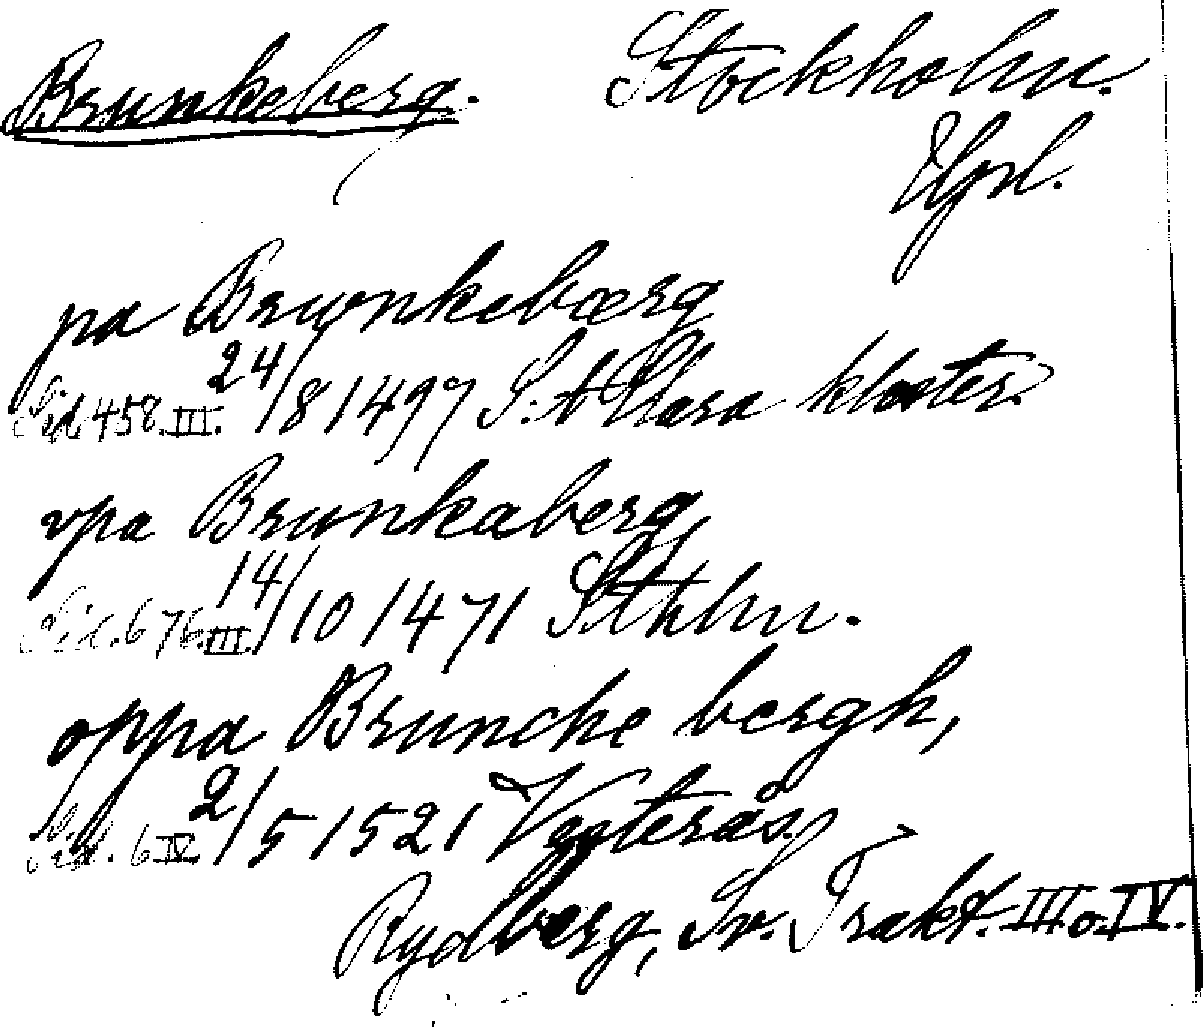 Brunkeberg. Stockholm.
Upl.
pa Brunkebærg
Sid 458. III. 24/8 1497 S:t Clara kloster.
vpa Brunkaberg
Sid. 676. III. 14/10 1471 Sthlm.
oppa Brunche bergh,
Sid. 6 IV. 2/5 1521 Vesterås,
Rydberg, Sv. Trakt. III o. IV.